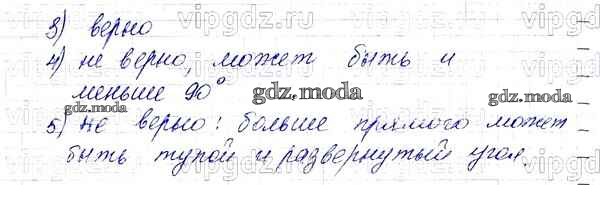 3) верно
4) не верно, может быть и
меньше 90°
gdz.moda
gdz.moda
gdz.moda
5) не верно: больше прямого может
быть тупой и развернутый угол.